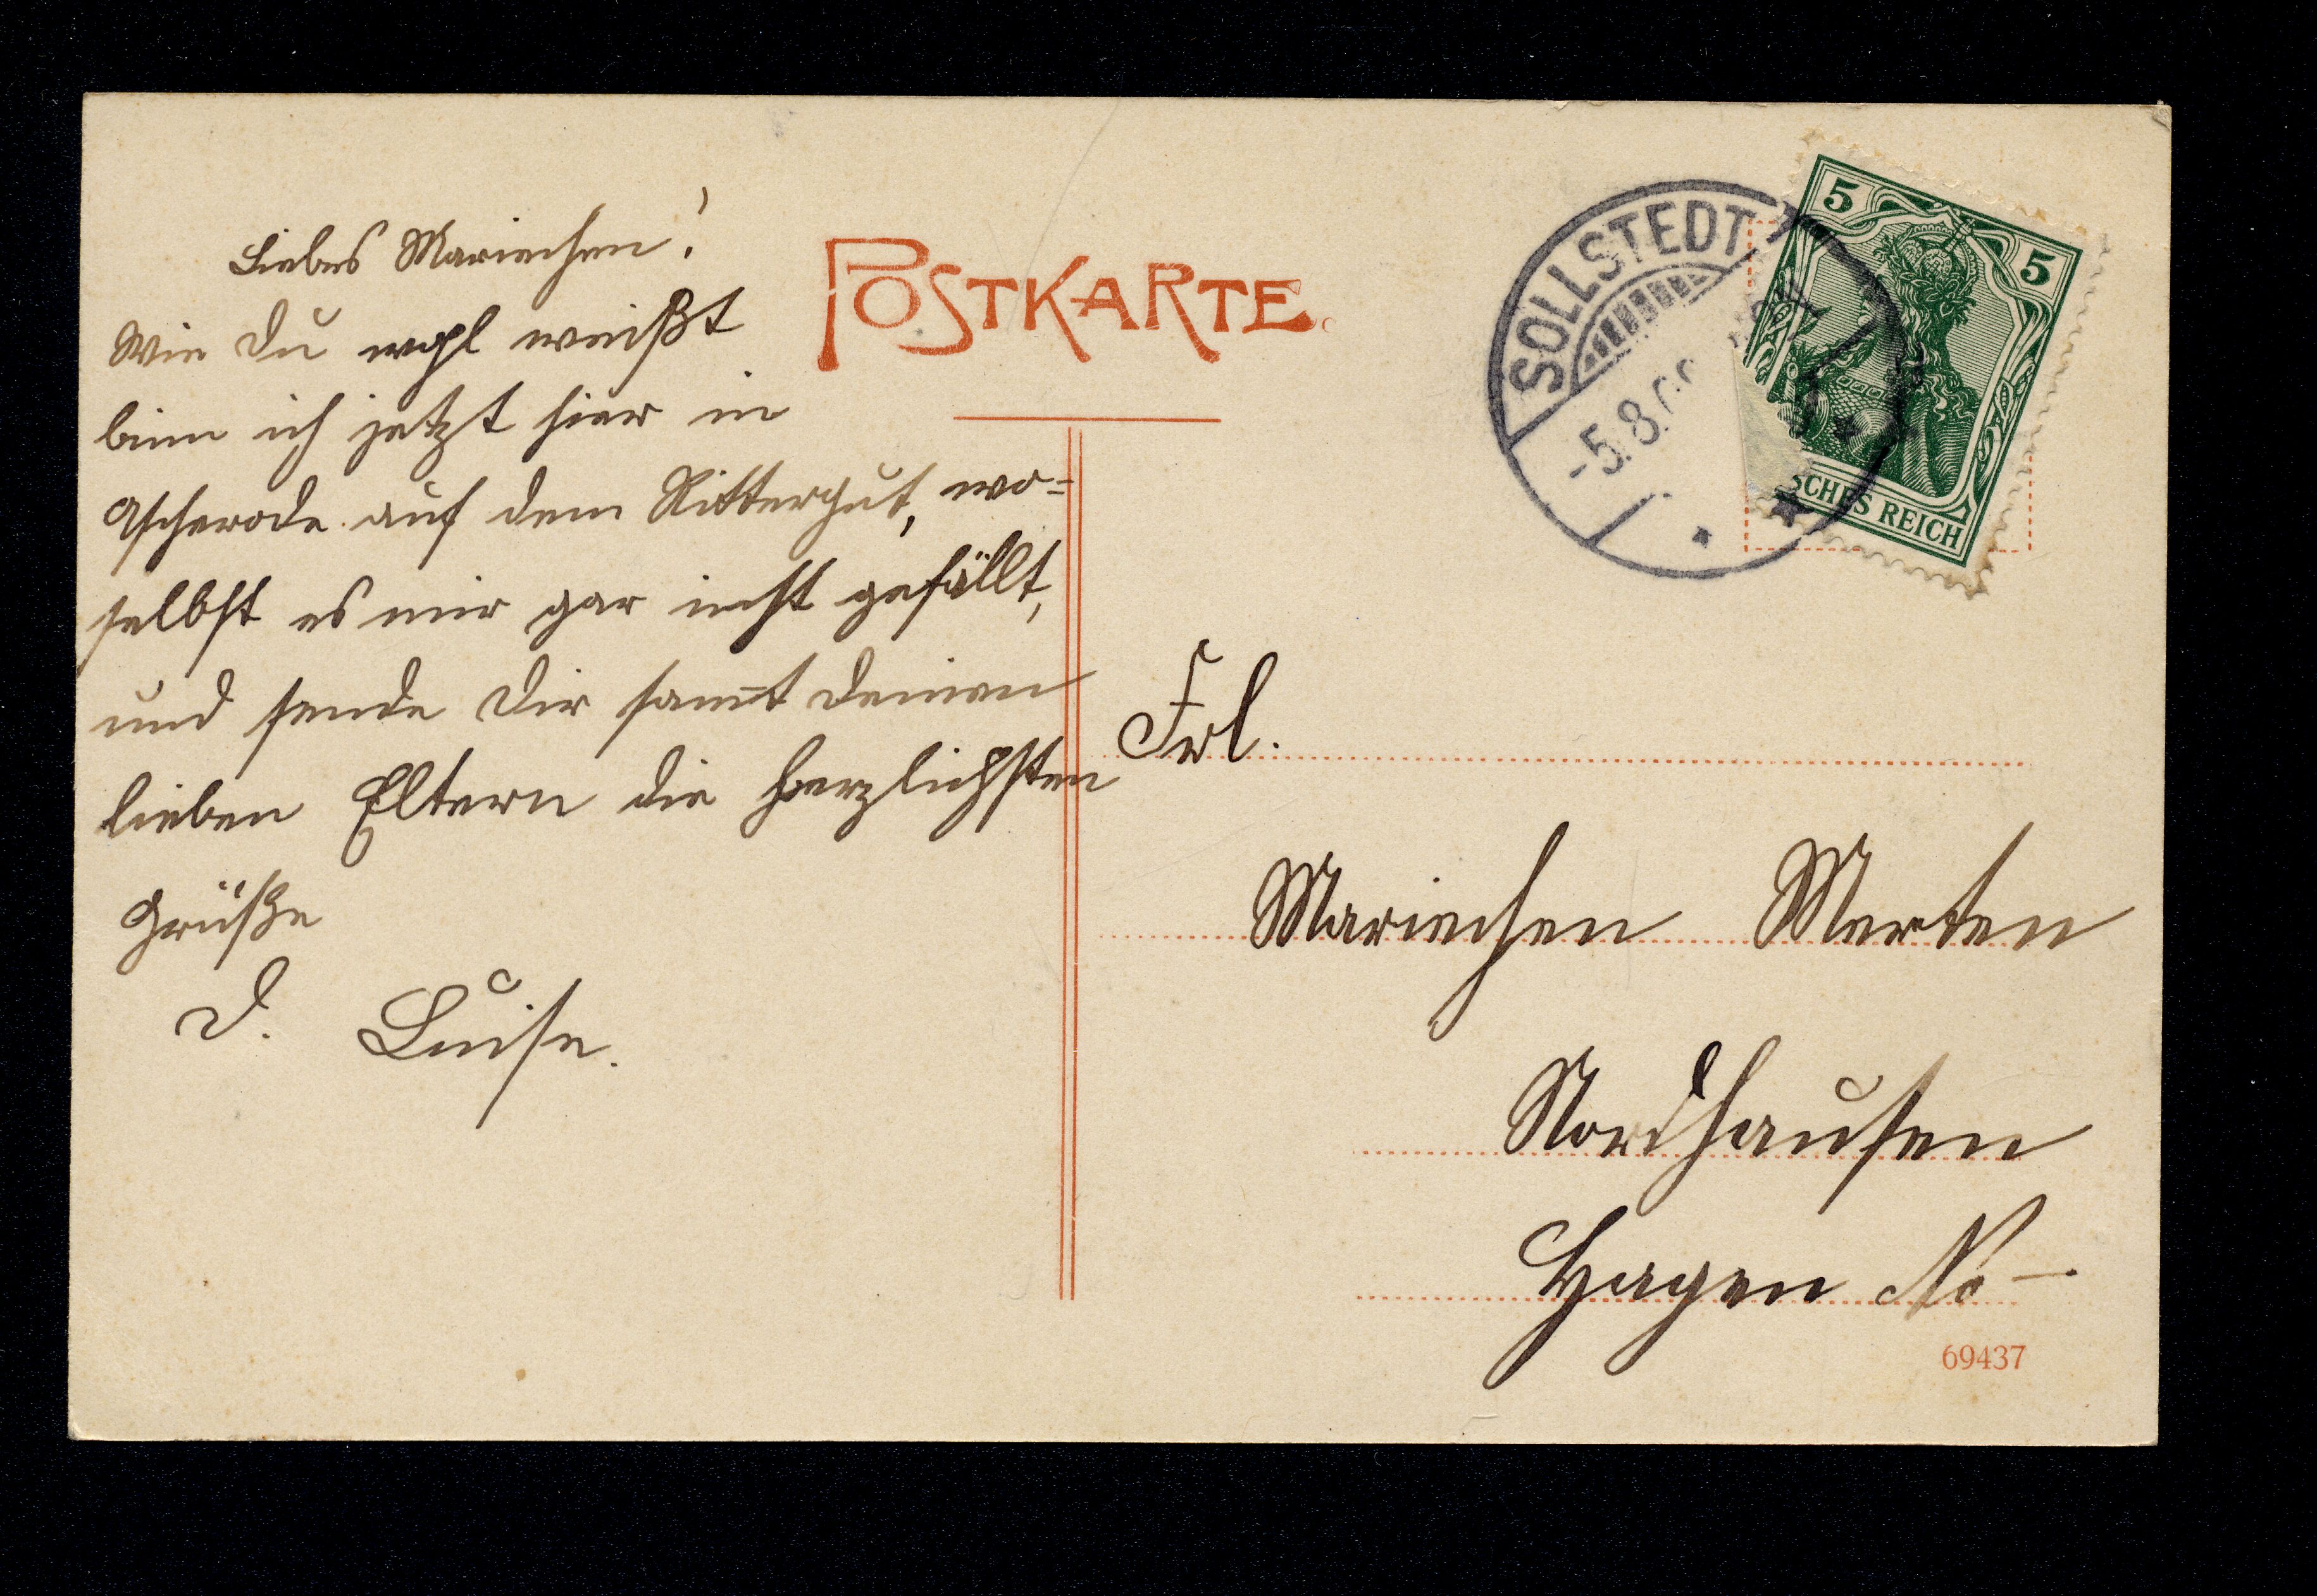 Liebes Mariechen!
Wie Du wohl weißt
binn ich jetzt hier in
Ascherode auf dem Rittergut, wo=
selbst es mir gar nicht gefällt,
und sende Dir sam̅t Deinen
lieben Eltern die herzlichsten
Grüße
D. Luise.
POSTKARTE.
SOLLSTEDT
-5.8.
5
5
SCHES REICH
Frl.
Mariechen Merten
Nordhausen
Hagen No –.
69437